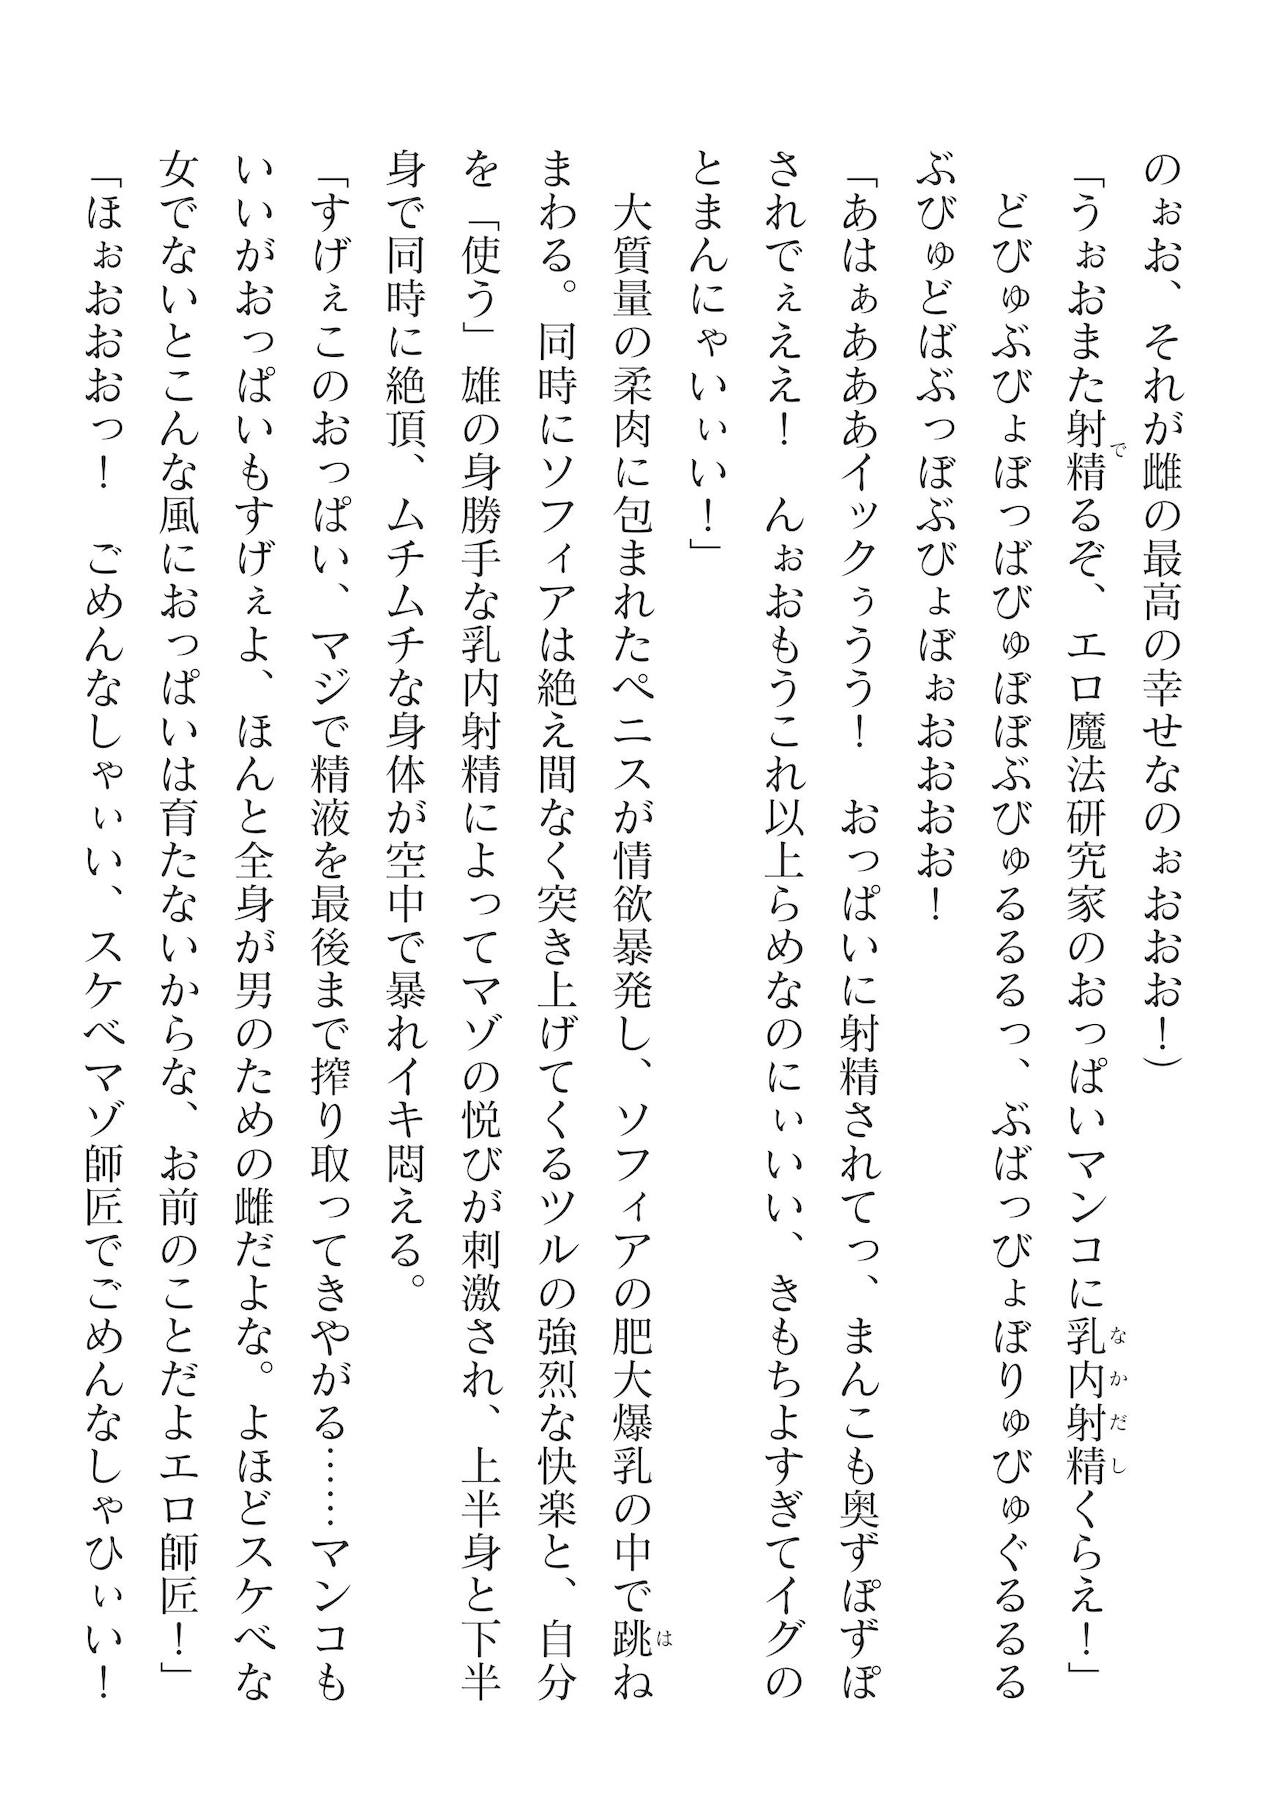 のぉお、それが雌の最高の幸せなのぉおおお！）
「うぉおまた射精るぞ、エロ魔法研究家のおっぱいマンコに乳内射精くらえ！」
で
なかだし
どびゅぶびょぼっばびゅぼぼぶびゅるるるっ、ぶばっびょぼりゅびゅぐるるる
ぶびゅどばぶっぼぶびょぼぉおおおお！
「あはぁあああイックぅうう！　おっぱいに射精されてっ、まんこも奥ずぽずぽ
されでぇええ！　んぉおもうこれ以上らめなのにぃいい、きもちよすぎてイグの
とまんにゃいぃい！」
大質量の柔肉に包まれたペニスが情欲暴発し、ソフィアの肥大爆乳の中で跳ね
は
まわる。同時にソフィアは絶え間なく突き上げてくるツルの強烈な快楽と、自分
を「使う」雄の身勝手な乳内射精によってマゾの悦びが刺激され、上半身と下半
身で同時に絶頂、ムチムチな身体が空中で暴れイキ悶える。
「すげぇこのおっぱい、マジで精液を最後まで搾り取ってきやがる……マンコも
いいがおっぱいもすげぇよ、ほんと全身が男のための雌だよな。よほどスケベな
女でないとこんな風におっぱいは育たないからな、お前のことだよエロ師匠！」
「ほぉおおおっ！　ごめんなしゃぃい、スケベマゾ師匠でごめんなしゃひぃい！